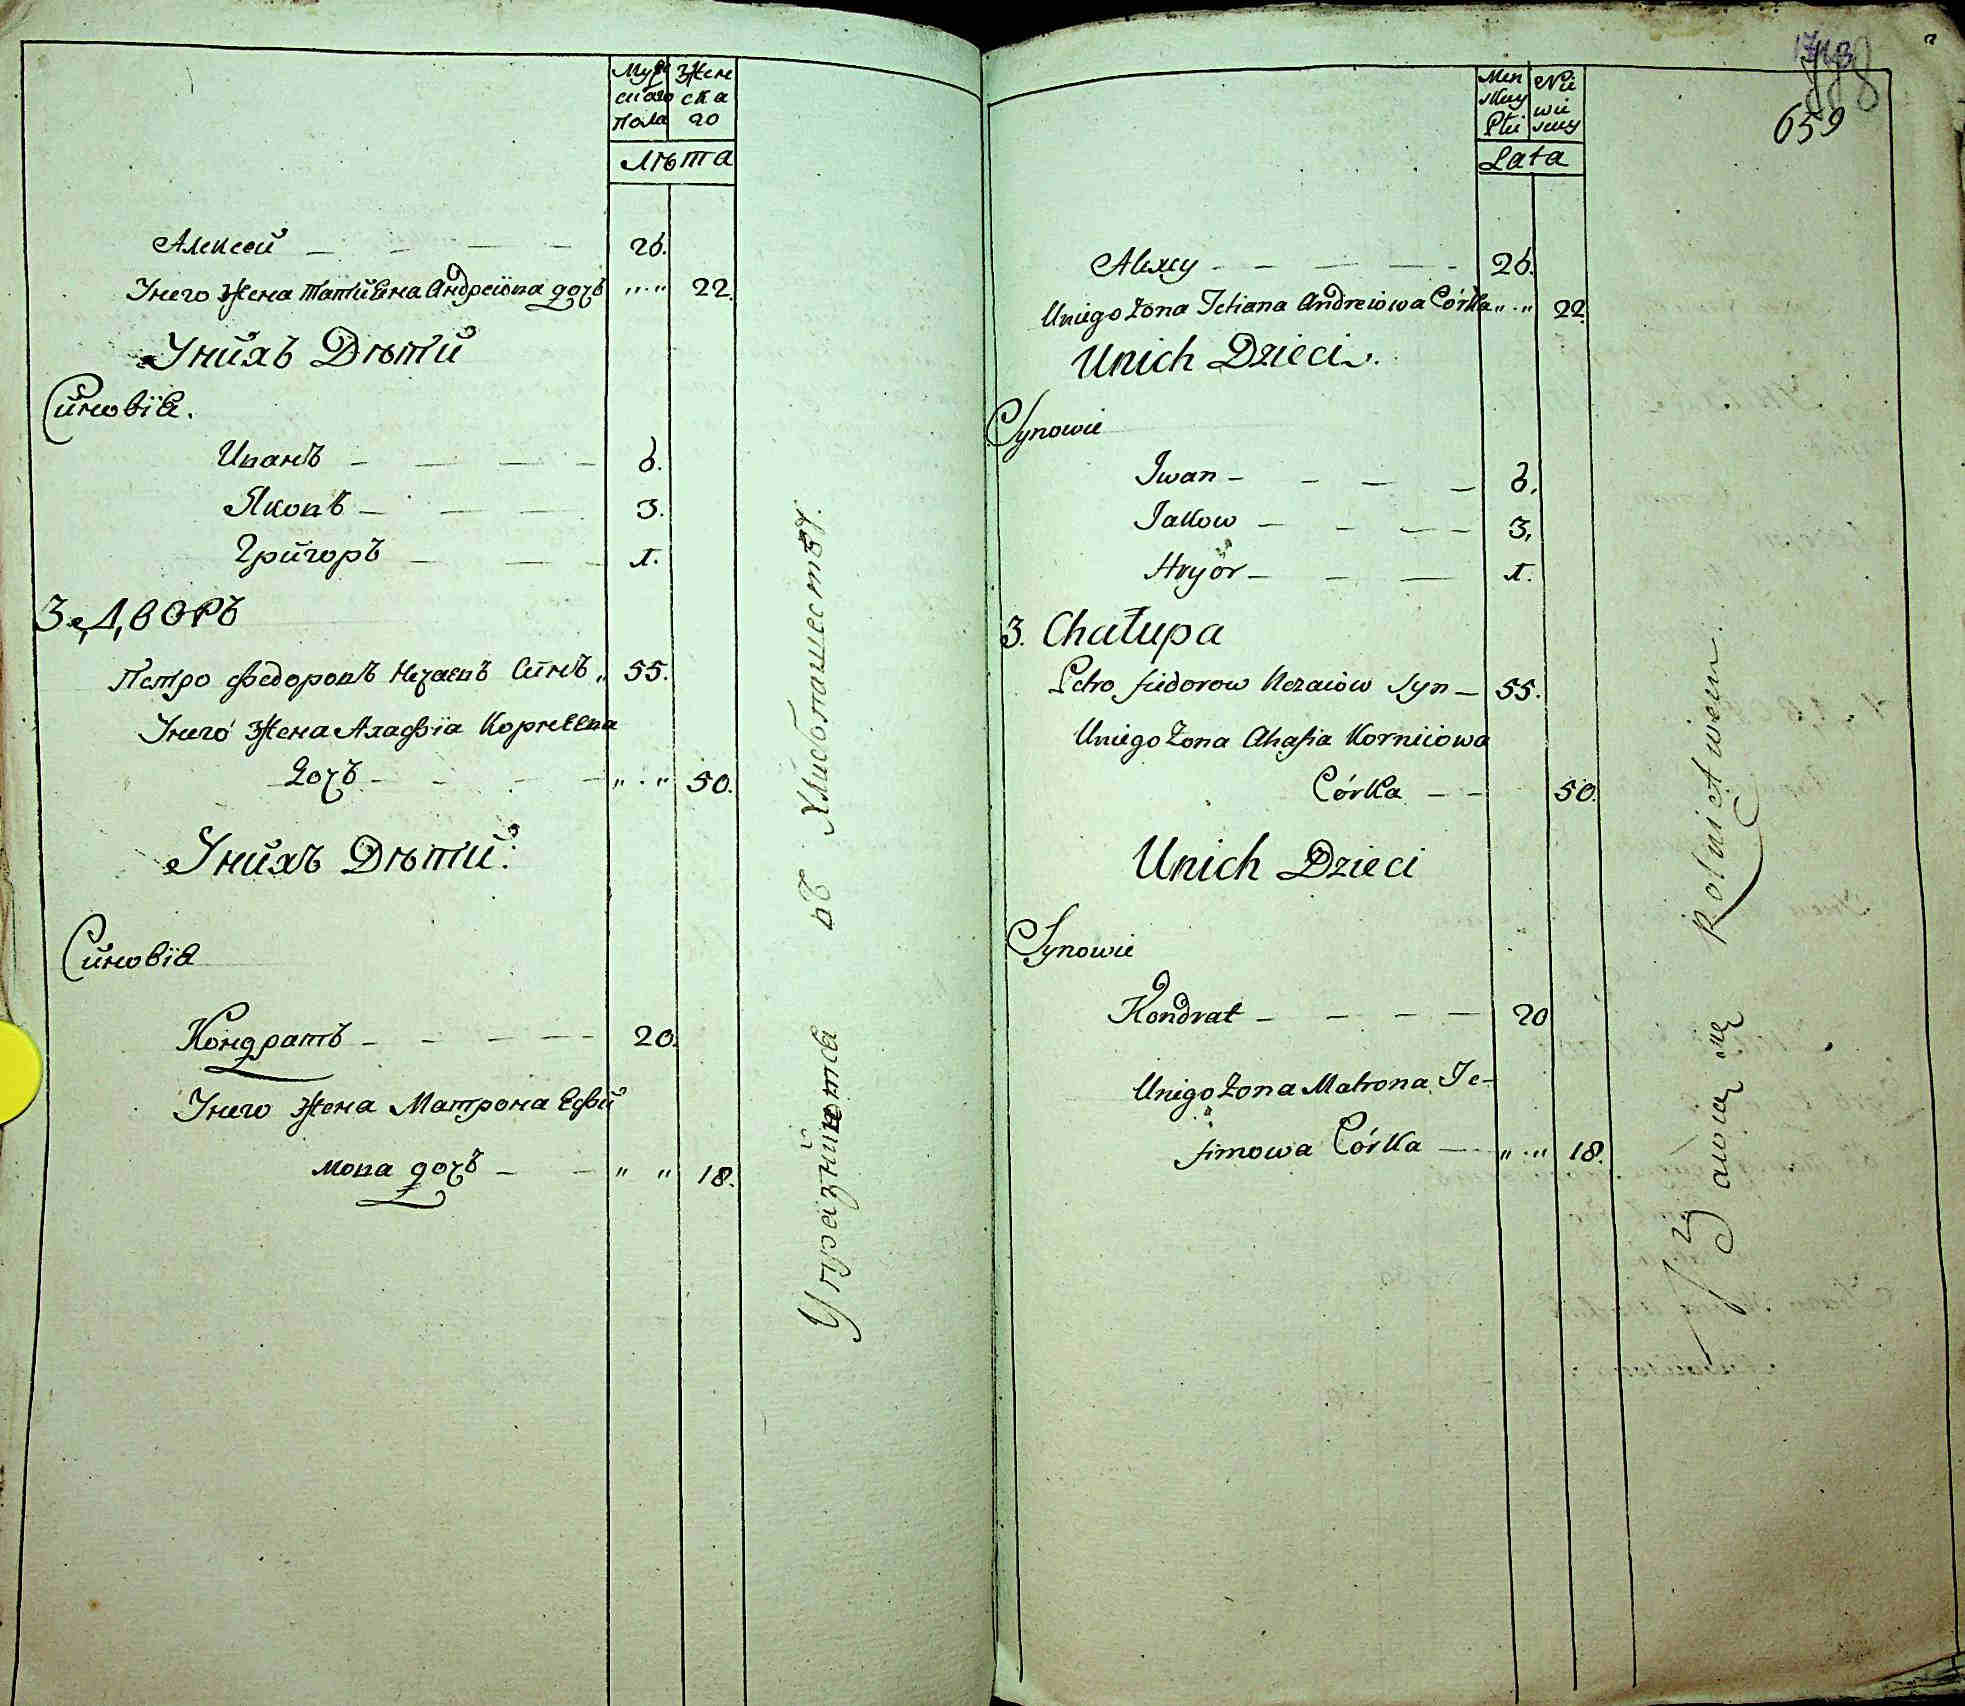 Муж Жен
скаго ска
пола го
Лѣта
Алексѣй — — — — 26.
Унего жена Татиѣна Андреюва дочъ „ „ 22.
Унихъ Дѣти
Синовіѣ.
Иванъ — — — — 6.
Яковъ — — — 3.
Григоръ — — — 1.
3 Дворъ
Петро Федоровъ Нечаевъ Синъ „ 55.
Унего жена Агафія Корнеева
Дочъ — — — — „ „ 50.
Унихъ Дѣти:
Синовіѣ
Кондратъ — — — — 20.
Унего жена Матрона Ефи
мова дочъ — — „ „ 18.
Упразнюютса въ Хлиболашествѣ.
659
Men Nie
skey wie
Płci skey
Lata
Alexey — — — — 26.
Uniego Żona Tetiana Andreiowa Córka „ „ 22.
Unich Dzieci.
Synowie
Iwan — — — — 6.
Iakow — — — — 3.
Hryör — — — 1.
3. Chałupa
Petro fiedorow Nezaiów Syn — 55.
Uniego Żona Ahafia Korniiowa
Córka — — 50.
Unich Dzieci
Synowie
Kondrat — — — — 20
Uniego Żona Matrona Je-
fimowa Córka — „ „ 18.
Zawią się Rolnictwem.